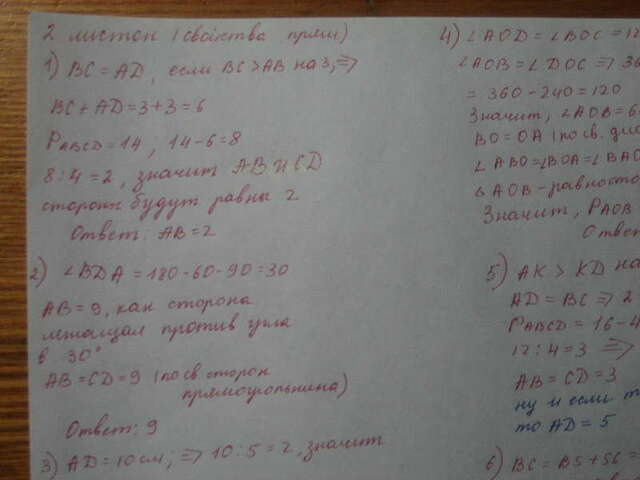 2 листок (свойства прям)
1) BC = AD, если BC > AB на 3, =>
BC + AD = 3 + 3 = 6
PABCD = 14, 14 - 6 = 8
8 : 4 = 2, значит AB и CD
стороны будут равны 2
Ответ: AB = 2
2) ∠BDA = 180 - 60 - 90 = 30
AB = 9, как сторона
лежащая против угла
в 30°
AB = CD = 9 (по св. сторон
прямоугольника)
Ответ: 9
3) AD = 10 см; => 10 : 5 = 2, значит
4) ∠AOD = ∠BOC = 12
∠AOB = ∠DOC => 36
= 360 - 240 = 120
Значит, ∠AOB = 6
BO = OA (по св. диа
∠ABO = ∠BOA = ∠BAO
△AOB - равносто
Значит, PAOB
Ответ
5) AK > KD на
AD = BC => 2
PABCD = 16 - 4
12 : 4 = 3 =>
AB = CD = 3
ну и если т
то AD = 5
6) BC = BS + SC =